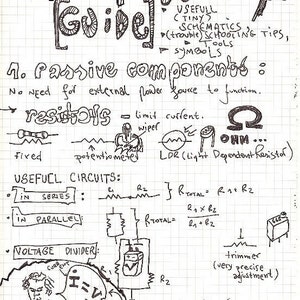 [GUIDE]
USEFULL
(TINY)
SCHEMATICS
(trouble)SCHOOTING TIPS,
TOOLS
SYMBOLS
1. Passive components:
No need for external power source to function.
resistors - limit current.
wiper
Ω
OHM...
fixed
potentiometer
LDR (Light Dependent Resistor)
USEFUCL CIRCUITS:
• IN SERIES:
R1 R2
RTOTAL= R1 + R2
• IN PARALLEL:
RTOTAL= R1 x R2
R1 + R2
trimmer
(very precise
adjustment)
• VOLTAGE DIVIDER:
R2